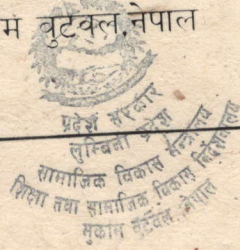 म बुटवल,नेपाल
प्रदेश सरकार
लुम्बिनी प्रदेश
सामाजिक विकास मन्त्रालय
शिक्षा तथा सामाजिक विकास निर्देशनालय
मुकाम बुटवल, नेपाल